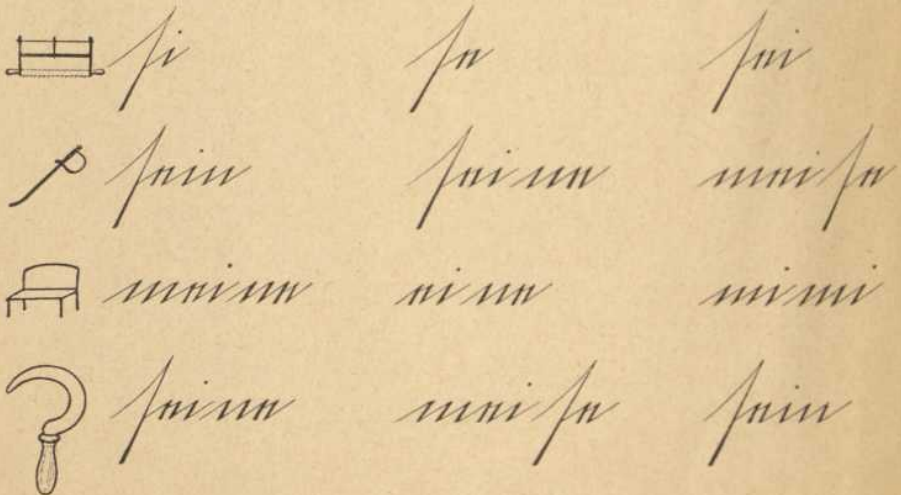 si se sei
sein sei ne mei se
mei ne ei ne mi mi
sei ne mei se sein